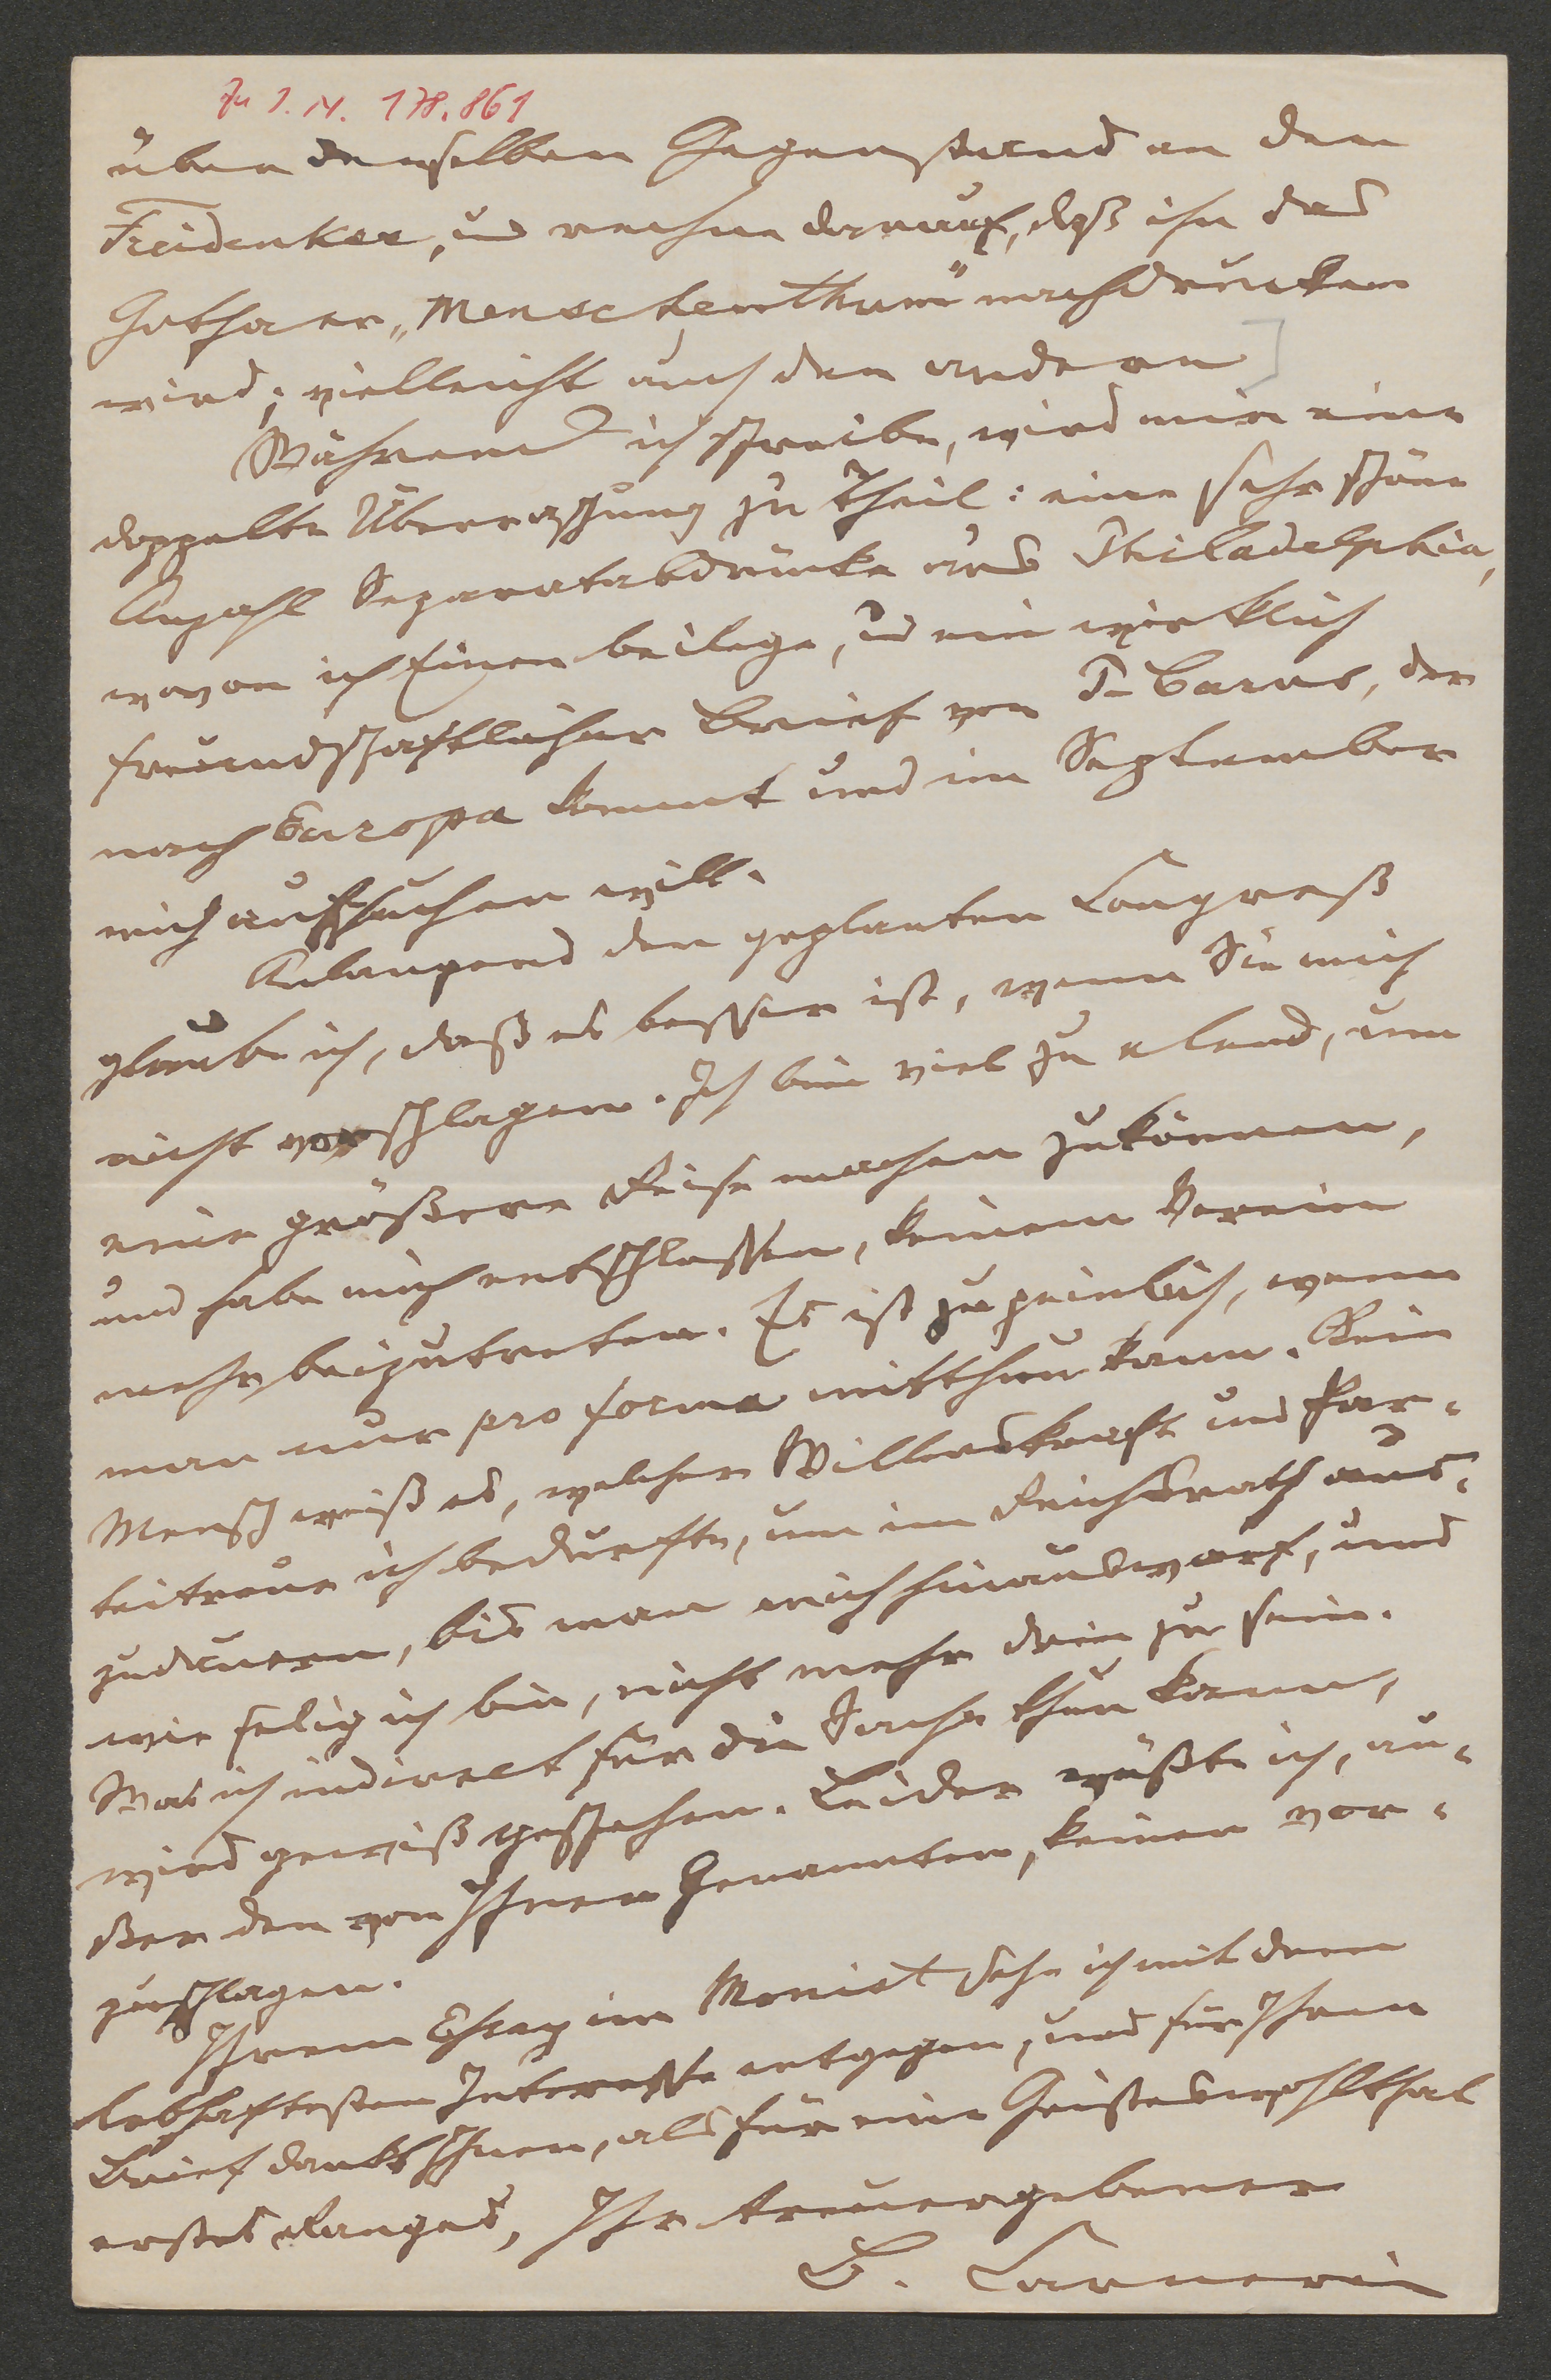 Zu I.N. 178.861
über denselben Gegenstand an den
Freidenker, und rechne darauf, daß ihn das
Gothaer „Menschenthum" nachdrucken
wird; vielleicht auch den anderen]
Während ich schreibe, wird mir eine
doppelte Überraschung zu Theil: eine sehr schöne
Anzahl Separatabdrücke aus Philadelphia,
wovon ich Einen beilege, und ein wirklich
freundschaftlicher Brief von P. Carus, der
nach Europa kommt und im September
mich aufsuchen will.
Anlangend den geplanten Congreß
glaube ich, daß es besser ist, wenn Sie mich
nicht vorschlagen. Ich bin viel zu elend, um
eine größere Reise machen zu können,
und habe mich entschlossen, keinem Verein
mehr beizutreten. Es ist zu peinlich, wenn
man nur pro forma mitthun kann. Kein
Mensch weiß es, welcher Willenskraft und Par-
teitreue ich bedurfte, um im Reichsrath aus-
zudauern, bis man mich hinauswarf, und
wie selig ich bin, nicht mehr drin zu sein.
Was ich indirect für die Sache thun kann,
wird gewiß geschehen. Leider wüßte ich, au-
ßer den von Ihnen Genannten, keinen vor-
zuschlagen.
Ihrem Essay im Monist sehe ich mit dem
lebhaftesten Interesse entgegen, und für Ihren
Brief dankt Ihnen, als für eine Geisteswohlthat
ersten Ranges, Ihr treuergebener
B. Carneri